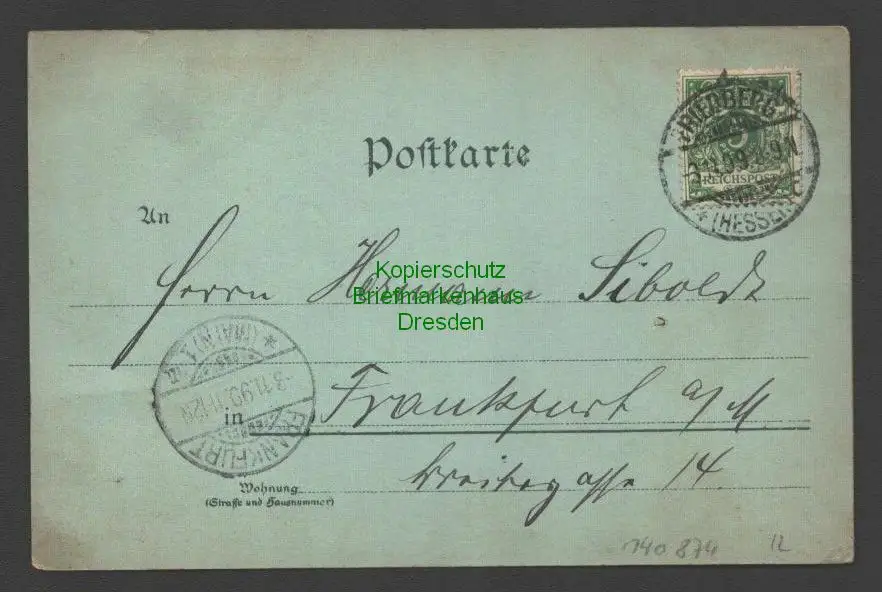 Postkarte
FRIEDBERG
REICHSPOST
(HESSEN)
An
Herrn Hermann Siboldt
Kopierschutz
Briefmarkenhaus
Dresden
FRANKFURT
(MAIN) 1
in Frankfurt a/M
Breitegasse 14.
Wohnung
(Straße und Hausnummer)
140874 12